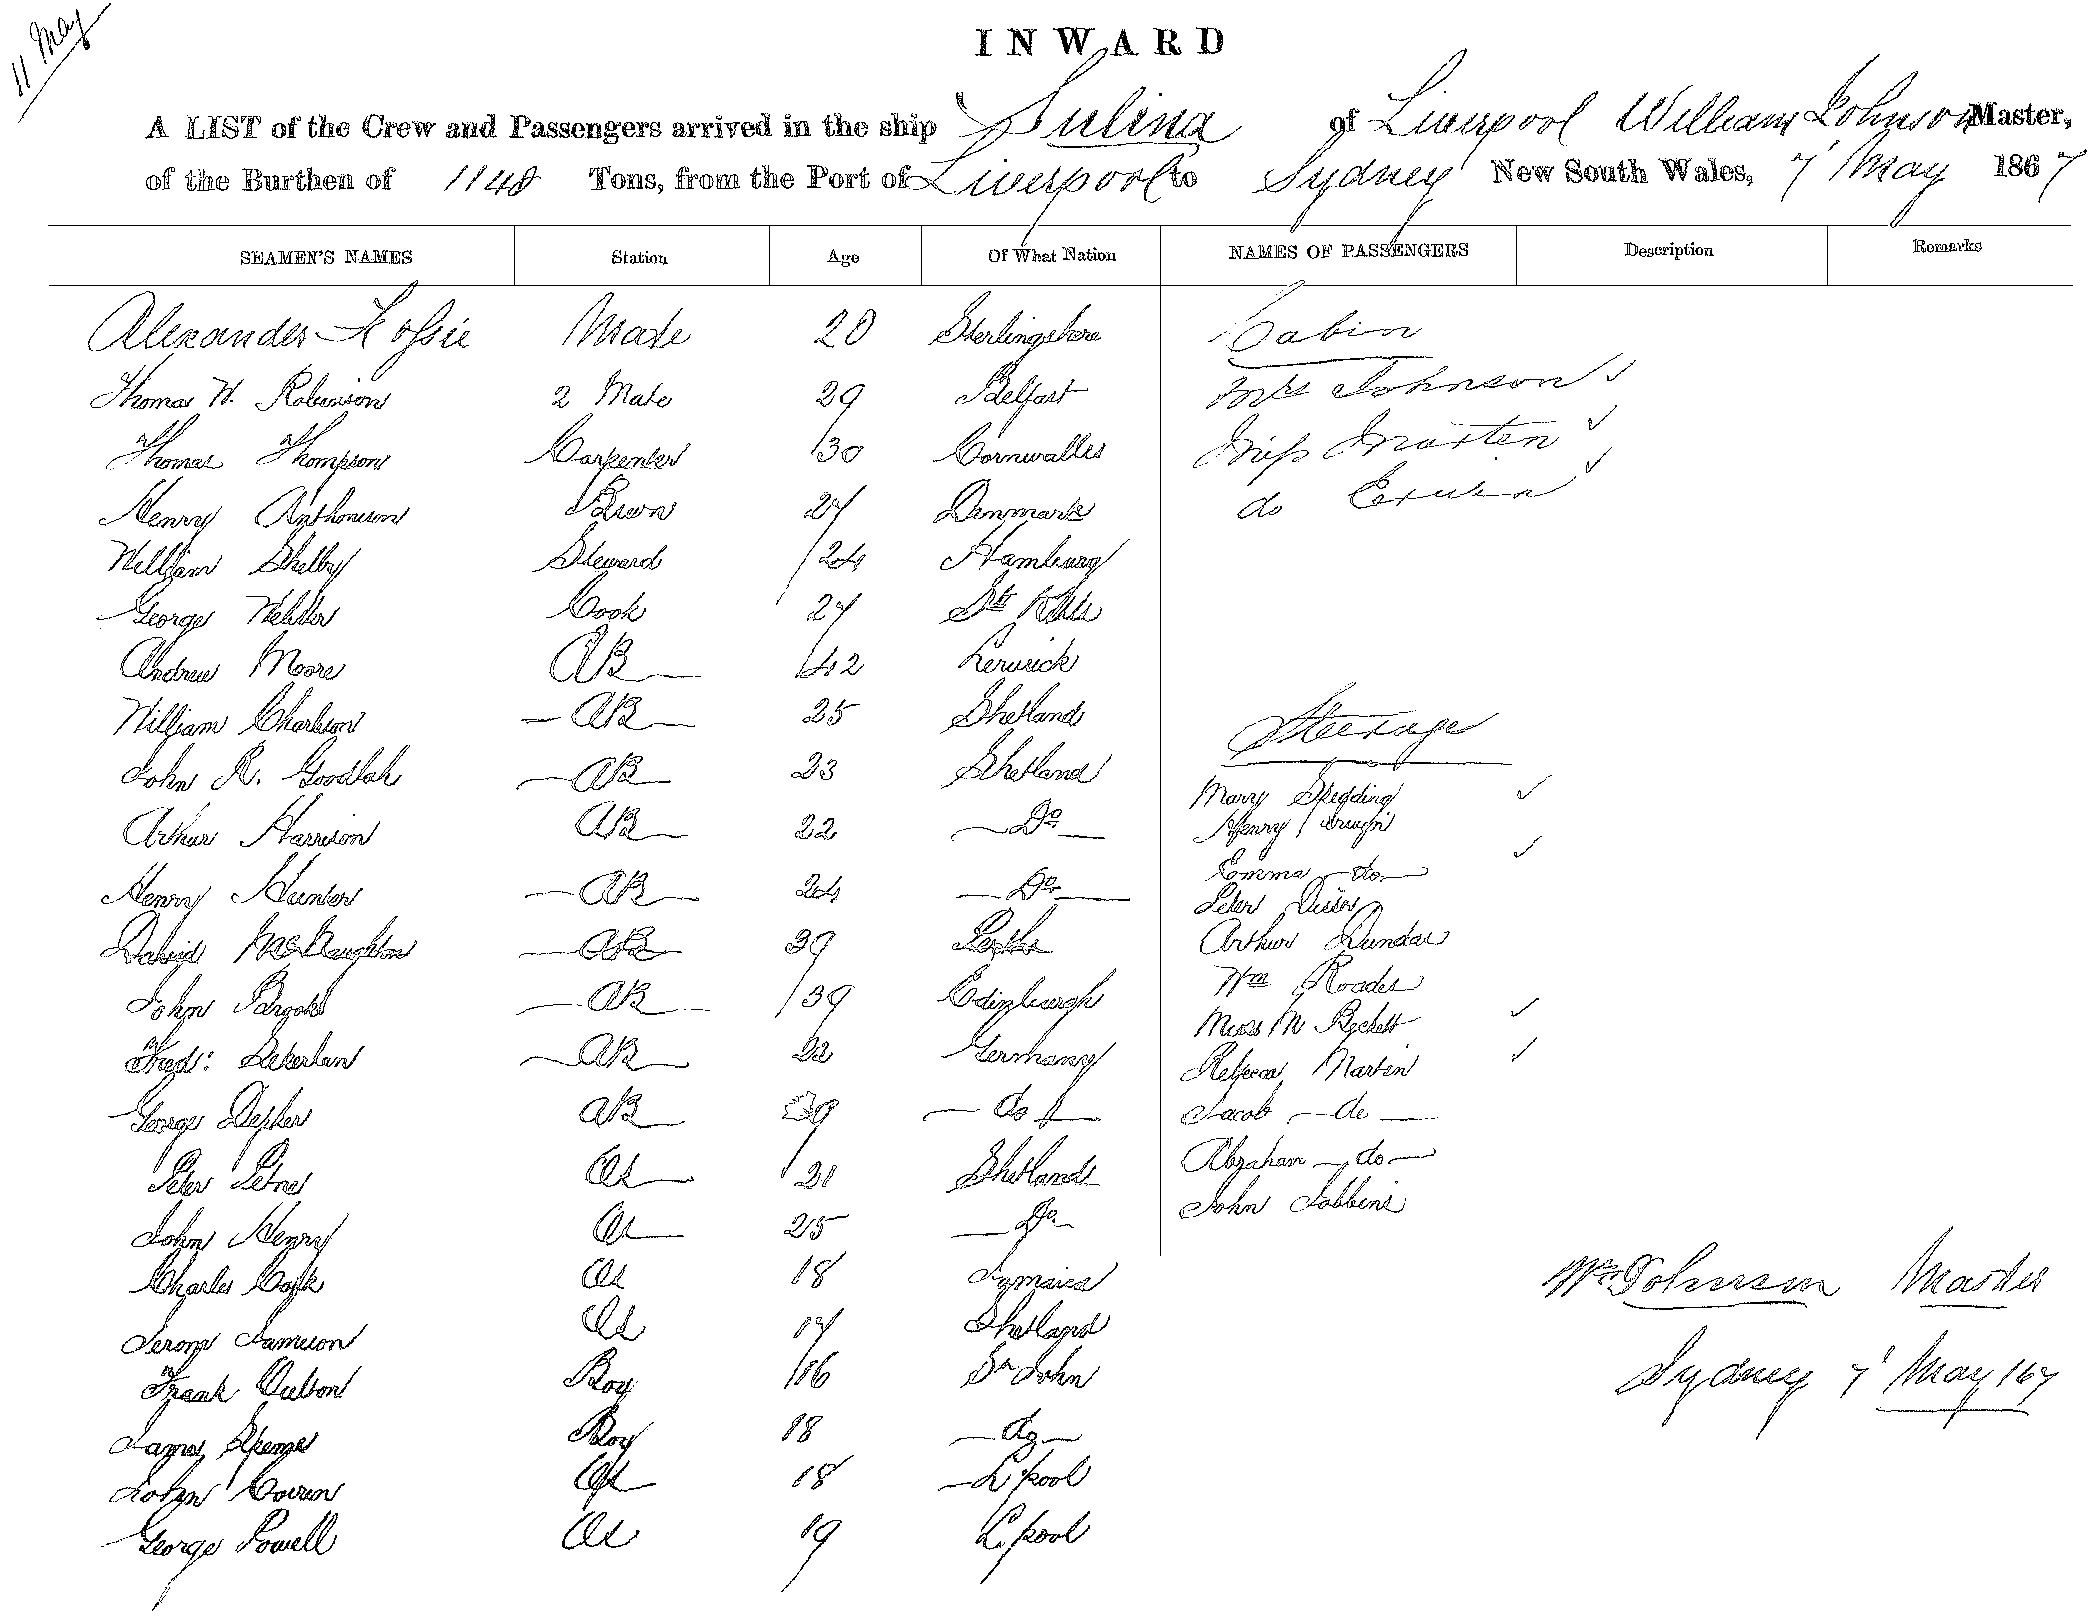 11 May
INWARD
A LIST of the Crew and Passengers arrived in the ship Sulina of Liverpool William Johnson Master,
of the Burthen of 1148 Tons, from the Port of Liverpool to Sydney New South Wales, 7 May 1867
SEAMEN'S NAMES Station Age Of What Nation NAMES OF PASSENGERS Description Remarks
Alexander Mate 20 Sterlingshire Cabin
Thomas W. Robinson 2 Mate 29 Belfast Mrs Johnson
Thomas Thompson Carpenter 30 Cornwalles Miss Marten
Henry Anthonison 27 Denmark do
William Shelby Steward 24 Hamburg
George Webster Cook 27 St
Andrew Moore AB 42 Lerwick
William Charlson AB 25 Shetland Steerage
John R. Goodlah AB 23 Shetland Mary Spedding
Arthur Harrison AB 22 Do Henry
Emma do
Henry Hunter AB 24 Do Peter
David McNaughton AB 39 Perth Arthur Dundas
Wm Roades
John AB 39 Edinburgh Miss M Beckett
Fred: AB 22 Germany Rebecca Marten
George AB do Jacob do
Peter AS 21 Shetland Abraham do
John Jobbins
John Henry AS 25 Do
Charles AS 18 Jamaica Wm Johnson Master
Jerom Jameson AS 17 Shetland
Frank Oulton Boy 16 St John Sydney 7 May 67
James Boy 18 do
John AS 18 L.pool
George Powell AS 19 L.pool